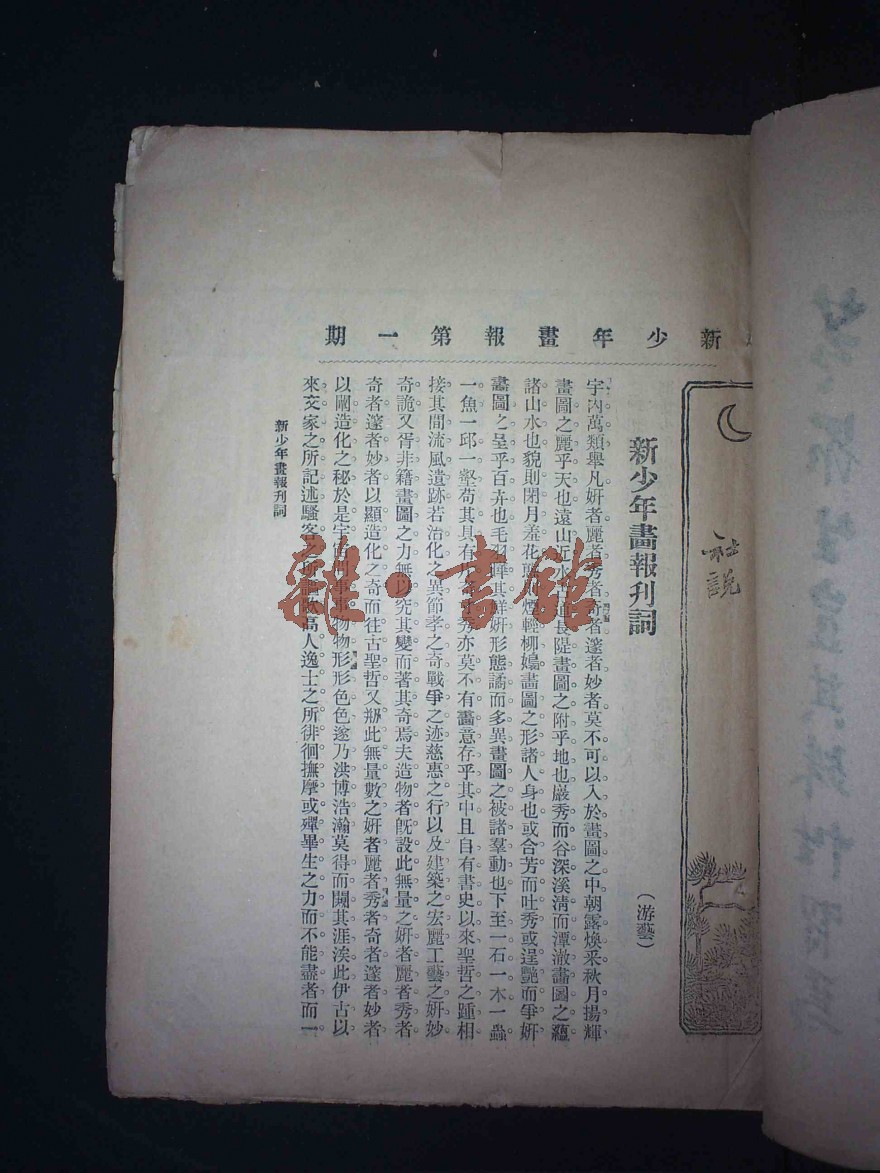 新少年畫報第一期
社說
新少年畫報刊詞
（游藝）
宇內萬類舉凡妍者麗者秀者奇者邃者妙者莫不可以入於畫圖之中朝露煥采秋月揚輝
畫圖之麗乎天也遠山近水長隄畫圖之附乎地也巖秀而谷深溪清而潭澈畫圖之蘊
諸山水也貌則閉月羞花煙輕柳嫋畫圖之形諸人身也或合芳而吐秀或逞艷而爭妍
畫圖之呈乎百卉也毛羽其鮮妍形態譎而多異畫圖之被諸羣動也下至一石一木一蟲
一魚一邱一壑苟其具有秀亦莫不有畫意存乎其中且自有書史以來聖哲之踵相
接其間流風遺跡若治化之異節孝之奇戰爭之迹慈惠之行以及建築之宏麗工藝之妍妙
奇詭又胥非藉畫圖之力無以究其變而著其奇焉夫造物者既設此無量之妍者麗者秀者
奇者邃者妙者以顯造化之奇而往古聖哲又剏此無量數之妍者麗者秀者奇者邃者妙者
以闡造化之秘於是宇宙間事事物物形形色色遂乃洪博浩瀚莫得而闚其涯涘此伊古以
來文家之所記述騷客之所高人逸士之所徘徊撫摩或殫畢生之力而不能盡者而一
新少年畫報刊詞
雜·書館